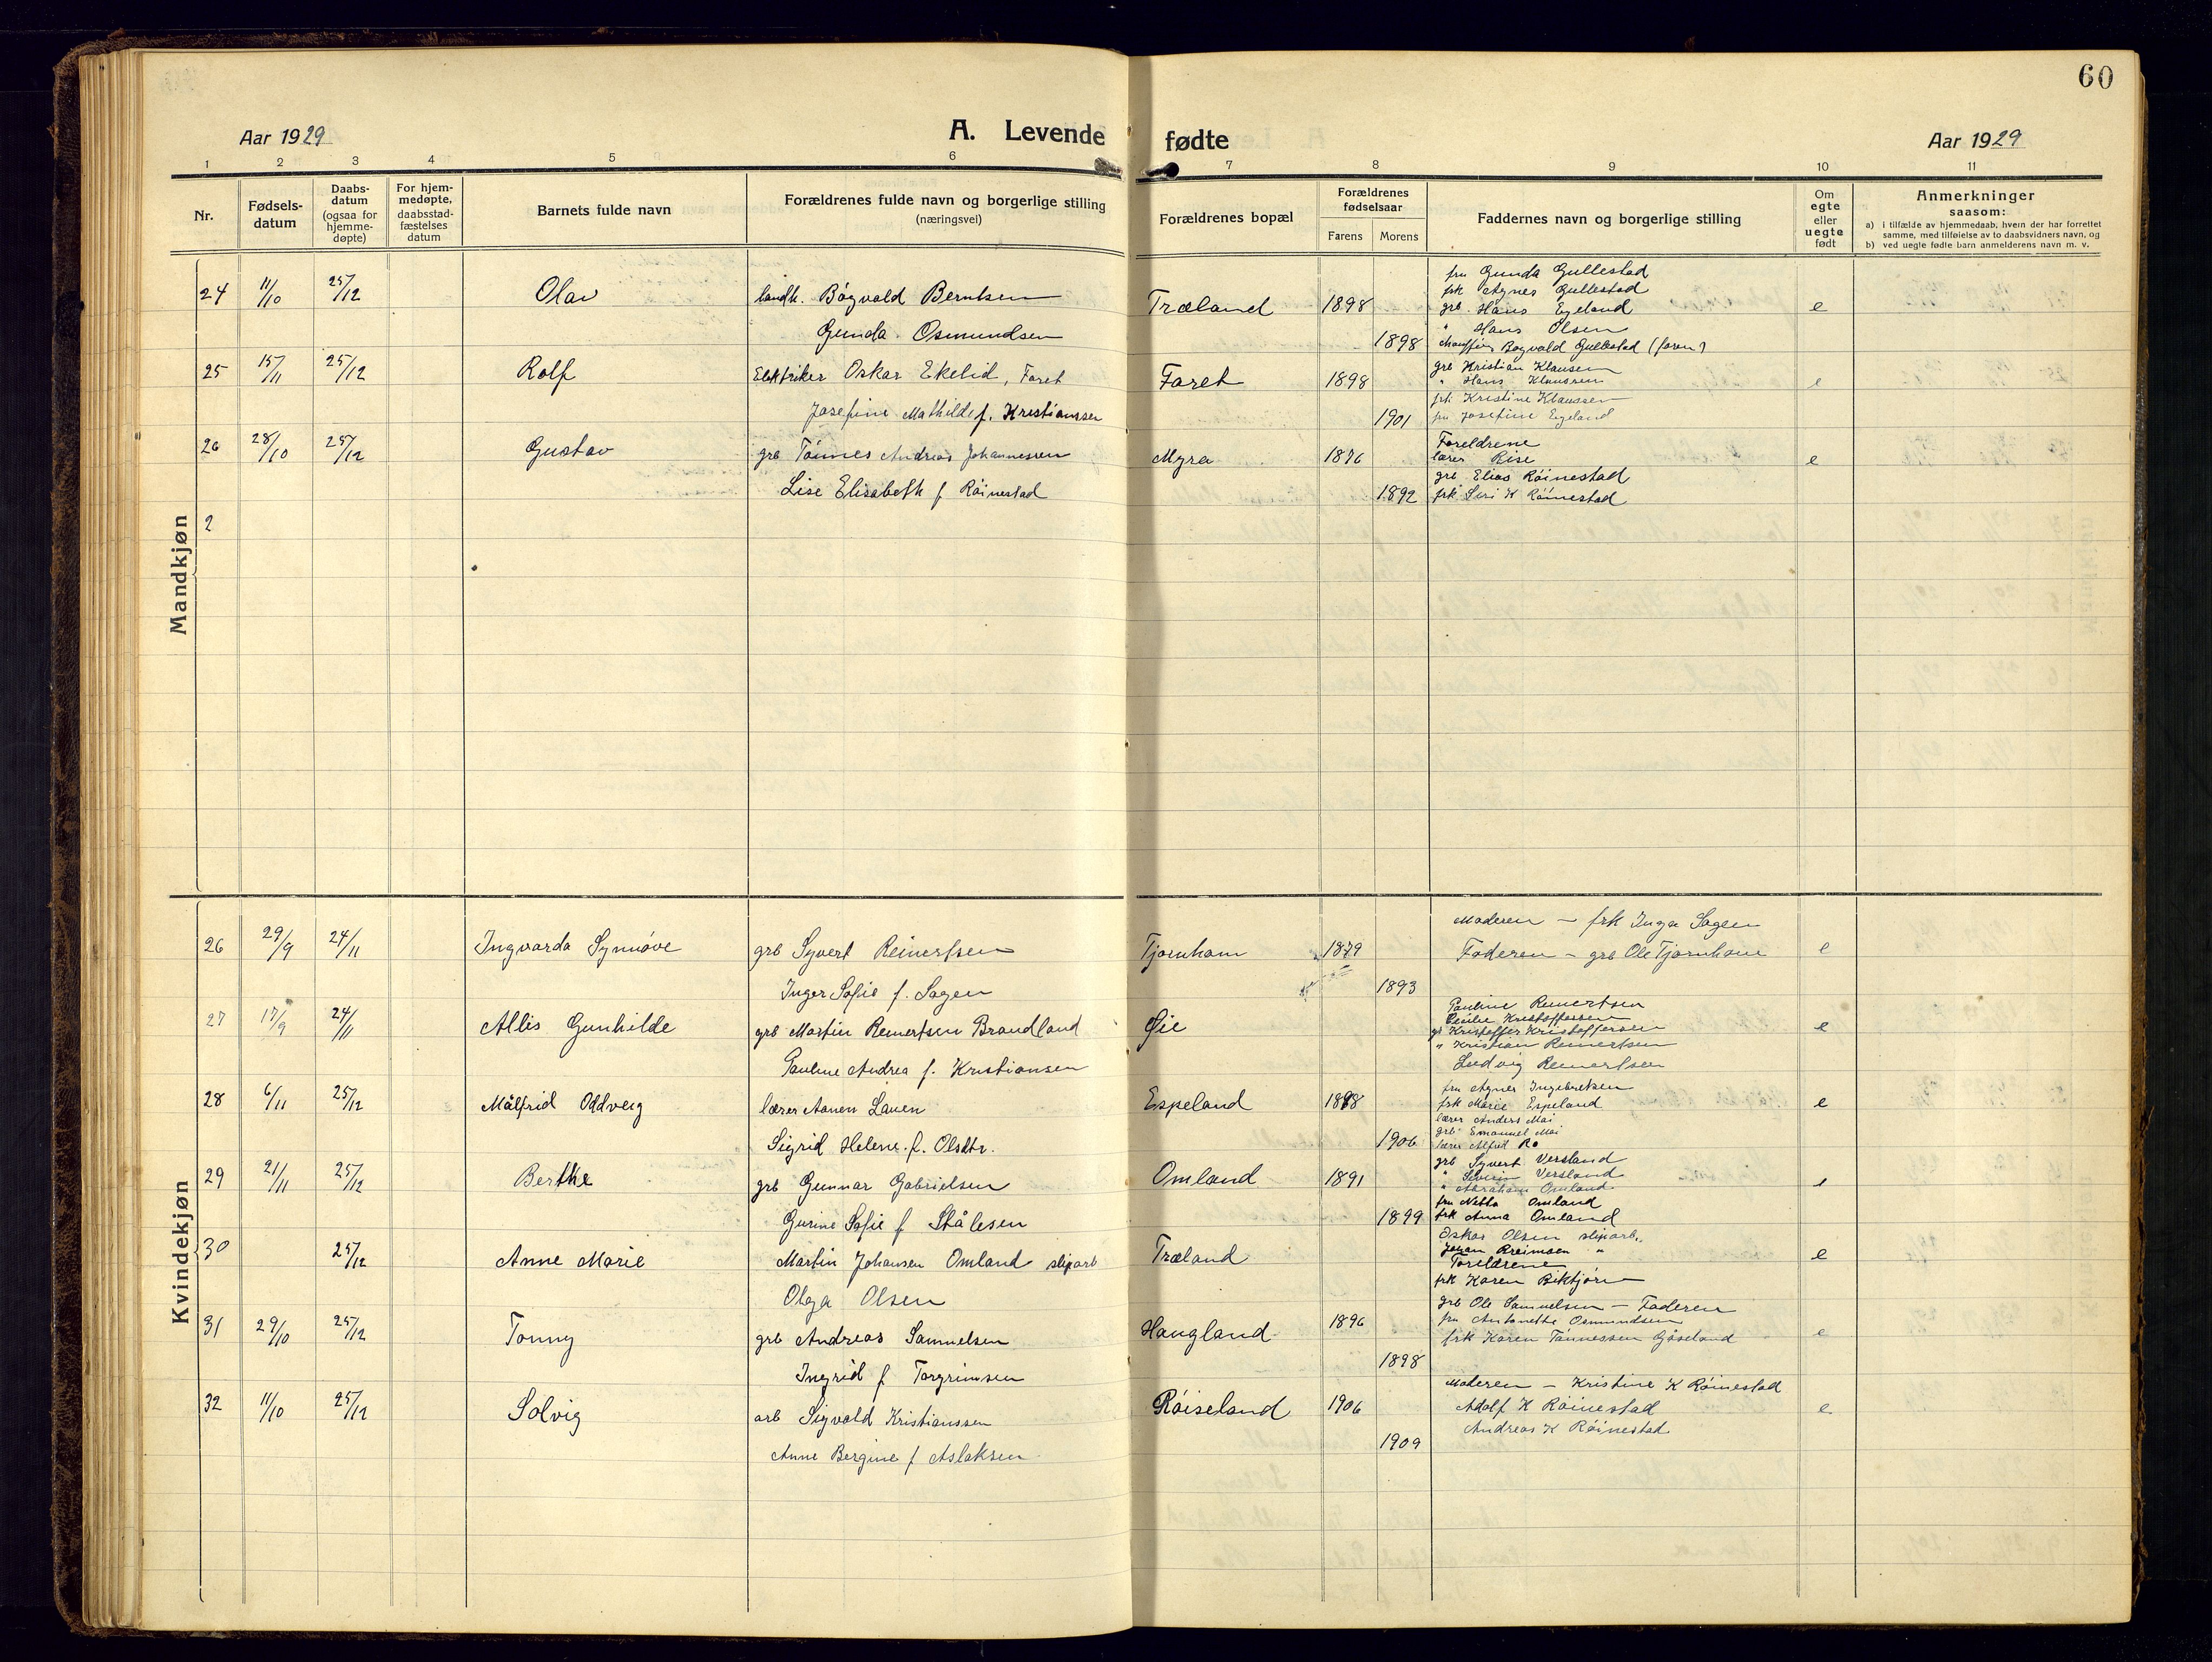 60
Aar 1929
A. Levende fødte
Aar 1929
1 2 3 4 5 6 7 8 9 10 11
Nr.
Fødsels-
datum
Daabs-
datum
(ogsaa for
hjemme-
døpte)
For hjem-
medøpte,
daabsstad-
fæstelses
datum
Barnets fulde navn
Forældrenes fulde navn og borgerlige stilling
(næringsvei)
Forældrenes bopæl
Forældrenes
fødselsaar
Farens Morens
Faddernes navn og borgerlige stilling
Om
egte
eller
uegte
født
Anmerkninger
saasom:
a) i tilfælde av hjemmedaab, hvem der har forrettet
samme, med tilføielse av to daabsvidners navn, og
b) ved uegte fødte barn anmelderens navn m. v.
Mandkjøn
24 11/10 25/12 Olav
landh. Bøgvald Berntsen
Gunda Osmundsen
Træland 1898
1898
fru Gunda Gullestad
frk Agnes Gullestad
grb. Hans Egeland
" Hans Olsen
Bøgvald Gullestad
e
25 15/11 25/12 Rolf
Elektriker Oskar Ekelid, Faret
Josefine Mathilde f. Kristianssen
Faret 1898
1901
grb Kristian Klausen
" Hans Klaussen
frk Kristine Klaussen
fru Josefine Egeland
e
26 28/10 25/12 Gustav
grb Tønnes Andreas Johannessen
Lise Elisabeth f Røinestad
Myra 1876
1892
Foreldrene
lærer Rise
grb. Elias Røinestad
frk Siri K Røinestad
e
2
Kvindekjøn
26 29/9 24/11 Ingvarda Synnøve
grb Syvert Reinertsen
Inger Sofie f. Sagen
Tjørnhom 1879
1893
Moderen – frk Inga Sagen
Faderen – grb Ole Tjørnhom
e
27 17/9 24/11 Allis Gunhilde
grb Martin Reinertsen Brandland
Pauline Andrea f. Kristiansen
Øie
Pauline Reinertsen
Cecilie Kristoffersen
gr Kristoffer Kristoffersen
" Kristian Reinertsen
Ludvig Reinertsen
e
28 6/11 25/12 Målfrid Oddveig
lærer Aanen Lauen
Sigrid Helene f. Olsdtr.
Espeland 1898
1906
fru Agnes Ingebretsen
frk Marie Espeland
lærer Anders Moi
grb Emanuel Moi
lærer Alfred Ro
e
29 21/11 25/12 Berthe
grb Gunnar Gabrielsen
Gurine Sofie f Stålesen
Omland 1891
1899
grb Syvert Versland
" Severin Versland
" Abraham Omland
fru Netta Omland
frk Anna Omland
e
30 25/12 Anne Marie
Martin Johansen Omland sliparb
Olga Olsen
Træland
Oskar Olsen sliparb.
Johan Kreimoen "
Foreldrene
frk Karen Birktjørn
e
31 29/10 25/12 Tonny
grb Andreas Samuelsen
Ingrid f Torgrimsen
Haugland 1896
1898
grb Ole Samuelsen – Faderen
fru Antonette Osmundsen
frk Karen Tønnessen Gjøseland
e
32 11/10 25/12 Solvig
arb Sigvald Kristianssen
Anne Bergine f Aslaksen
Røiseland 1906
1909
Moderen – Kristine K Røinestad
Adolf K Røinestad
Andreas K Røinestad
e